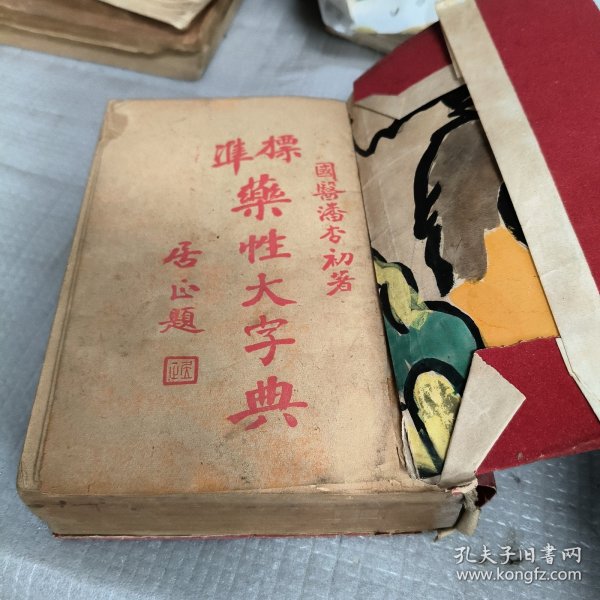 國醫潘杏初著
標準
藥性大字典
居正題
居正
孔夫子旧书网
www.kongfz.com